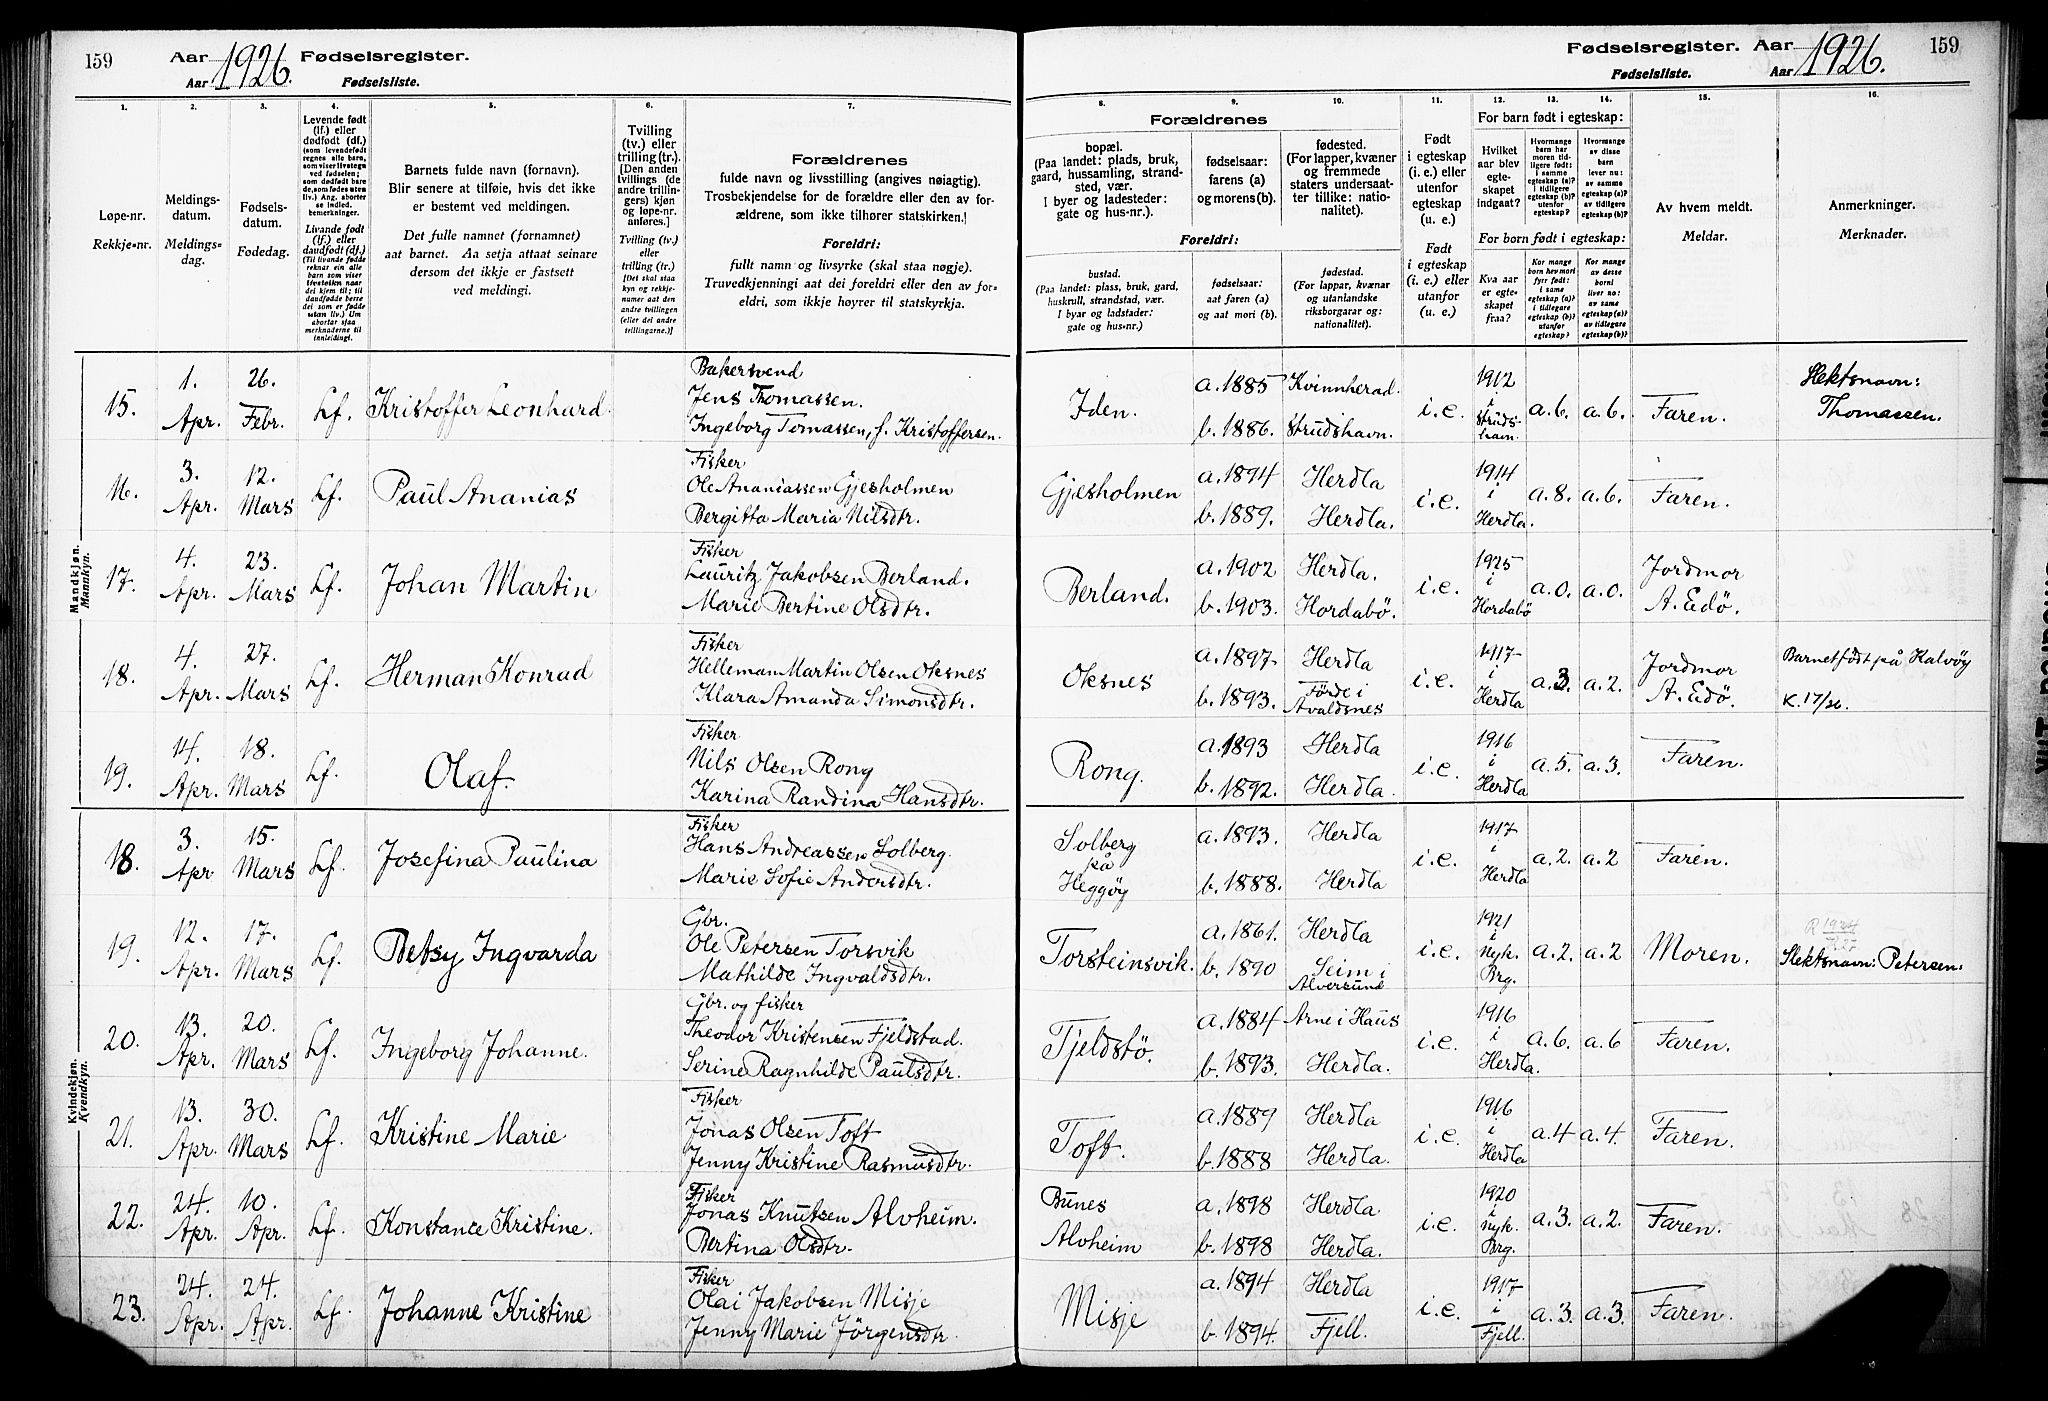 159
Aar 1926. Fødselsregister.
Aar Fødselsliste.
Fødselsregister. Aar 1926. 159
Fødselsliste. Aar
1. 2. 3. 4. 5. 6. 7. 8. 9. 10. 11. 12. 13. 14. 15. 16.
Løpe-nr.
Rekkje-nr.
Meldings-
datum.
Meldings-
dag.
Fødsels-
datum.
Fødedag.
Levende født
(lf.) eller
dødfødt (df.)
Livande født
(lf.) eller
daudfødt (df.)
Barnets fulde navn (fornavn).
Blir senere at tilføie, hvis det ikke
er bestemt ved meldingen.
Det fulle namnet (fornamnet)
aat barnet. Aa setja attaat seinare
dersom det ikkje er fastsett
ved meldingi.
Tvilling
(tv.) eller
trilling (tr.).
[Den anden
tvillings (de
andre trillin-
gers) kjøn
og løpe-nr.
anføres.]
Tvilling (tv.)
eller
trilling (tr.)
[Det skal staa
kyn og rekkje-
numer aat den
andre tvillingen
(eller dei andre
trillingarne.)]
Forældrenes
fulde navn og livsstilling (angives nøiagtig).
Trosbekjendelse for de forældre eller den av for-
ældrene, som ikke tilhører statskirken.]
Foreldri:
fullt namn og livsyrke (skal staa nøgje).
Truvedkjenningi aat dei foreldri eller den av for-
eldri, som ikkje høyrer til statskyrkja.
Forældrenes
bopæl.
(Paa landet: plads, bruk,
gaard, hussamling, strand-
sted, vær.
I byer og ladesteder:
gate og hus-nr.).
fødselsaar:
farens (a)
og morens (b).
fødested.
(For lapper, kvæner
og fremmede
staters undersaat-
ter tillike: natio-
nalitet).
Foreldri:
bustad.
(Paa landet: plass, bruk, gard,
huskrull, strandstad, vær.
I byar og ladstader:
gate og hus-nr.)
fødselsaar:
aat faren (a)
og aat mori (b).
fødestad.
(For lappar, kvænar
og utanlandske
riksborgarar og:
nationalitet).
Født
i egteskap
(i. e.) eller
utenfor
egteskap
(u. e.)
Født
i egteskap
(i. e.) eller
utanfor
(u. e.)
For barn født i egteskap:
Hvilket
aar blev
egte-
skapet
indgaat?
Hvormange
barn har
moren tid-
ligere født:
i samme
egteskap (a)?
i tidligere
egteskap (b)?
utenfor
egteskap?
Hvormange
av disse
barn
lever nu:
av samme
egteskap (a)?
av tidligere
egteskap (b)?
For born født i egteskap:
Kva aar
er egte-
skapet
fraa?
Kor mange
born hev mori
fyr født:
i same
egteskap (a)?
i tidlegare
egteskap (b)?
utanfor
egteskap?
Kor mange
av desse
borni
liver no:
av same
egteskap (a)?
av tidlegare
egteskap (b)?
Av hvem meldt.
Meldar.
Anmerkninger.
Merknader.
Mandkjøn.
Mannkyn.
15. 1. Apr. 26. Febr. Lf. Kristoffer Leonhard. Bakersvend
Jens Thomassen.
Ingeborg Tomassen, f. Kristoffersen.
Iden. a. 1885 Kvinnherad.
b. 1886. Strudshavn. i.e. 1912 i Struds-havn. a. 6. a. 6. Faren. Slektsnavn:
Thomassen.
16. 3. Apr. 12. Mars Lf. Paul Ananias Fisker
Ole Ananiassen Gjesholmen
Bergitta Maria Nilsdtr.
Gjesholmen a. 1894 Herdla
b. 1889. Herdla. i.e. 1914 i Herdla. a. 8. a. 6. Faren.
17. 4. Apr. 23. Mars Lf. Johan Martin Fisker
Lauritz Jakobsen Berland.
Marie Bertine Olsdtr.
Berland. a. 1902 Herdla.
b. 1903. Hordabö. i.e. 1925 i Hordabö a. 0. a. 0. Jordmor
A. Edö.
18. 4. Apr. 27. Mars Lf. Herman Konrad Fisker
Helleman Martin Olsen Oksnes
Klara Amanda Simonsdtr.
Oksnes a. 1897 Herdla
b. 1893. Förde i Avaldsnes i.e. 1917 i Herdla a. 3. a. 2. Jordmor
A. Edö. Barnet født på Kalvöy
K. 17/26.
19. 14. Apr. 18. Mars Lf. Olaf. Fisker
Nils Olsen Rong
Karina Randina Hansdtr.
Rong. a. 1893 Herdla
b. 1892. Herdla. i.e. 1916 i Herdla a. 5. a. 3. Faren.
Kvindekjøn.
Kvendkyn.
18. 3. Apr 15. Mars Lf. Josefina Paulina Fisker
Hans Andreassen Solberg.
Marie Sofie Andersdtr.
Solberg på Heggöy a. 1893. Herdla
b. 1888. Herdla i.e. 1917 i Herdla a. 2. a. 2 Faren.
19. 12. Apr. 17. Mars Lf. Betsy Ingvarda Gbr.
Ole Petersen Torsvik
Mathilde Ingvaldsdtr.
Torsteinsvik. a. 1861. Herdla
b. 1890 Seim i Alversund i.e. 1921 i Nyk. Brg. a. 2. a. 2 Moren. Slektsnavn: Petersen.
20. 13. Apr. 20. Mars Lf. Ingeborg Johanne. Gbr. og fisker
Theodor Kristensen Fjeldstad.
Serine Ragnhilde Paulsdtr.
Tjeldstö. a. 1884 Arne i Haus
b. 1893. Herdla. i.e. 1916 i Herdla. a. 6. a. 6 Faren.
21. 13. Apr. 30. Mars Lf. Kristine Marie Fisker
Jonas Olsen Toft
Jenny Kristine Rasmusdtr.
Toft. a. 1889 Herdla
b. 1888 Herdla. i.e. 1916 i Herdla a. 4 a. 4. Faren.
22. 24. Apr. 10. Apr. Lf. Konstance Kristine. Fisker
Jonas Knutsen Alvheim.
Bertina Olsdtr.
Bunes
Alvheim a. 1898 Herdla
b. 1898 Herdla. i.e. 1920 i Nyk. Brg. a. 3. a. 2. Faren.
23. 24. Apr. 24. Apr. Lf. Johanne Kristine Fisker
Olai Jakobsen Misje
Jenny Marie Jörgensdtr.
Misje a. 1894 Herdla
b. 1894. Fjell. i.e. 1917 i Fjell. a. 3. a. 3. Faren.